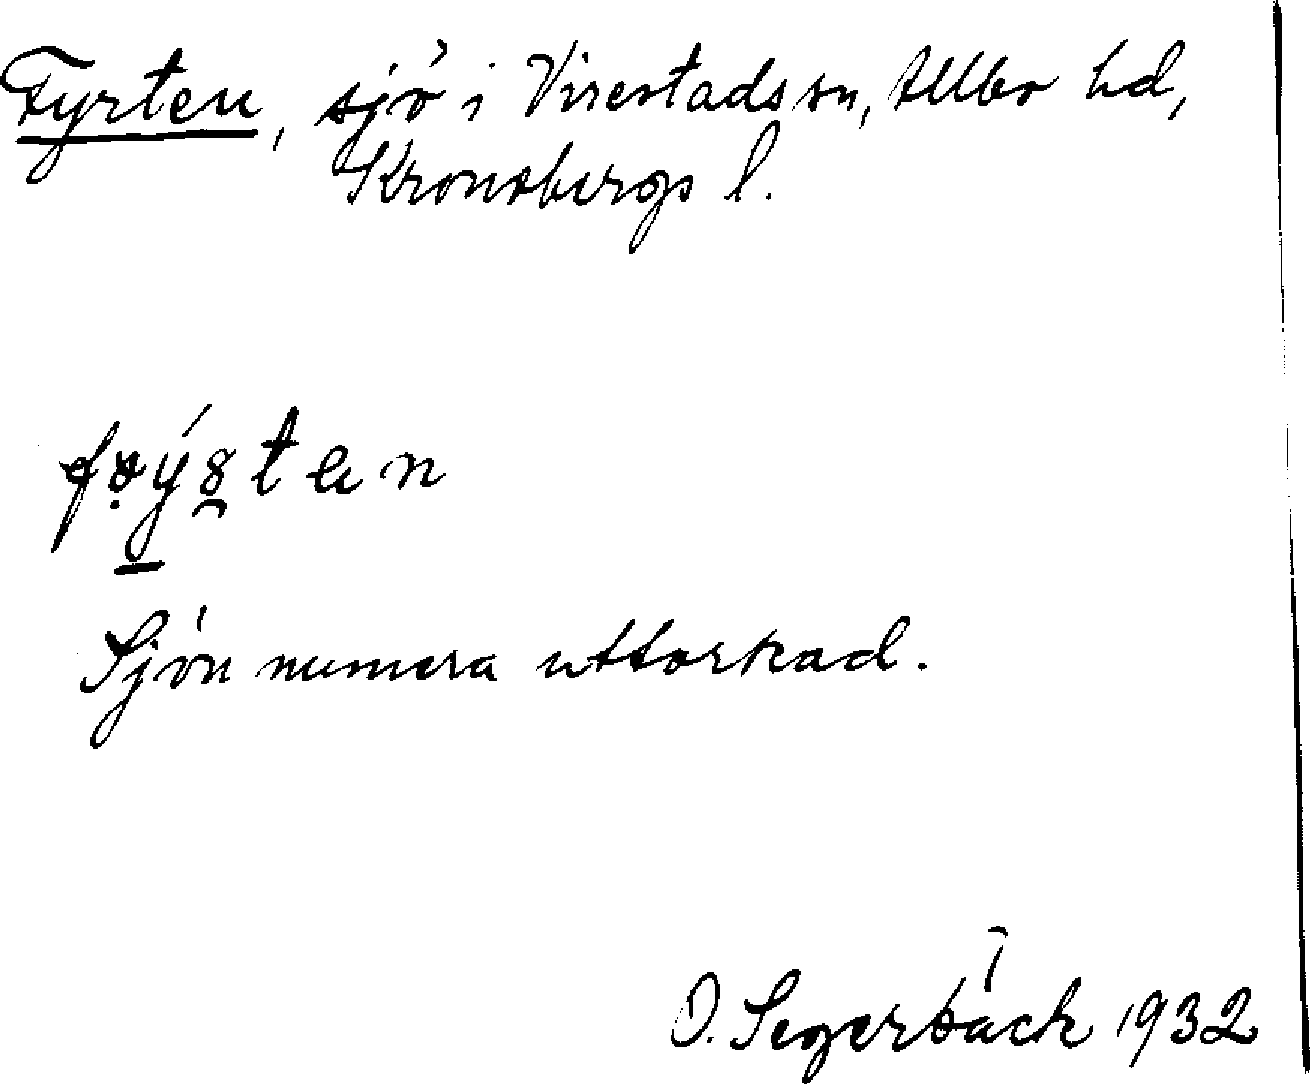 Fyrten, sjö i Virestads sn, Allbo hd,
Kronobergs l.
Sjön numera uttorkad.
O. Segerbäck 1932